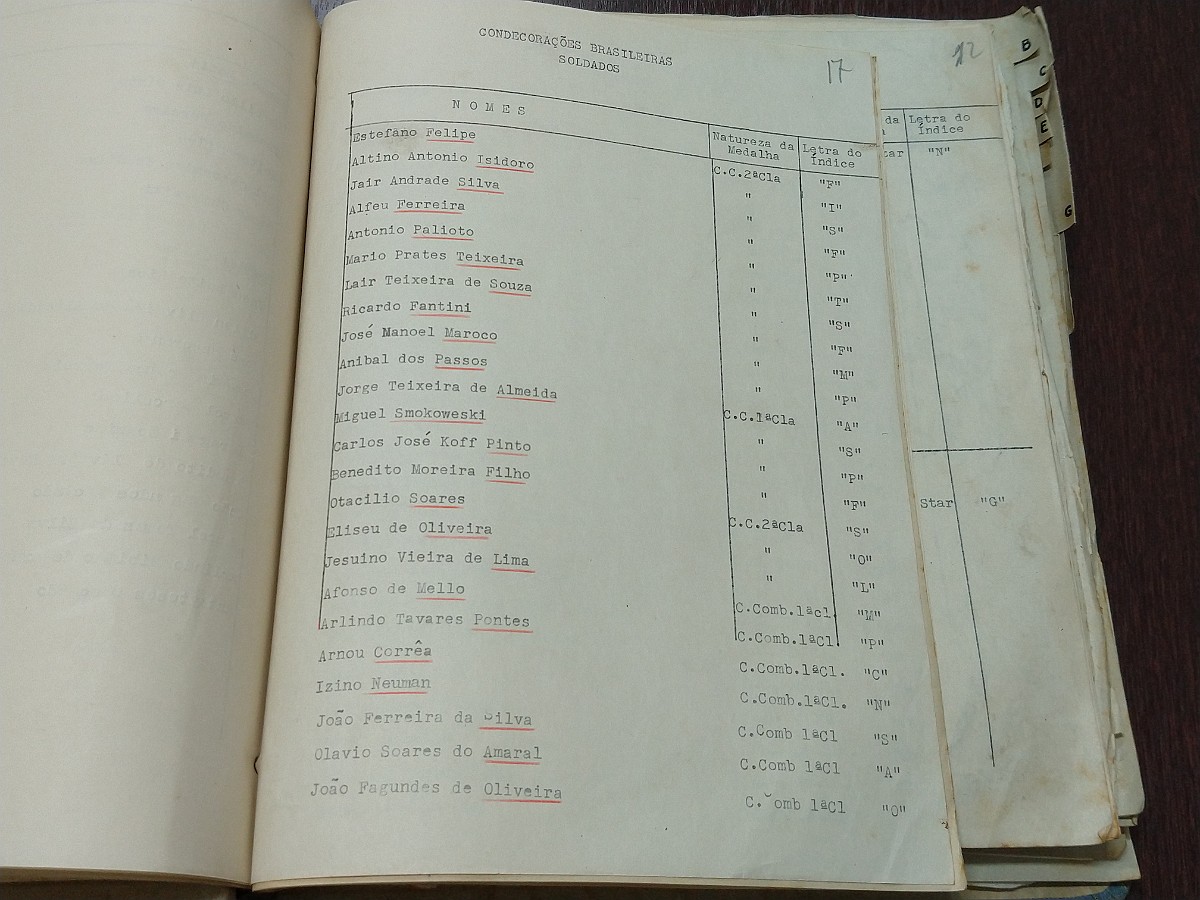 CONDECORAÇÕES BRASILEIRAS
SOLDADOS
17
N O M E S Natureza da Medalha Letra do Índice
Estefano Felipe C.C.2ªCla "F"
Altino Antonio Isidoro " "I"
Jair Andrade Silva " "S"
Alfeu Ferreira " "F"
Antonio Palioto " "P"
Mario Prates Teixeira " "T"
Lair Teixeira de Souza " "S"
Ricardo Fantini " "F"
José Manoel Maroco " "M"
Anibal dos Passos " "P"
Jorge Teixeira de Almeida C.C.1ªCla "A"
Miguel Smokoweski " "S"
Carlos José Koff Pinto " "P"
Benedito Moreira Filho " "F"
Otacilio Soares C.C.2ªCla "S"
Eliseu de Oliveira " "O"
Jesuino Vieira de Lima " "L"
Afonso de Mello C.Comb.1ªcl. "M"
Arlindo Tavares Pontes C.Comb.1ªCl. "P"
Arnou Corrêa C.Comb.1ªCl. "C"
Izino Neuman C.Comb.1ªCl. "N"
João Ferreira da Silva C.Comb 1ªCl "S"
Olavio Soares do Amaral C.Comb 1ªCl "A"
João Fagundes de Oliveira C.Comb 1ªCl "O"
12
da Letra do
Índice
"N"
Star "G"
B
C
D
E
G